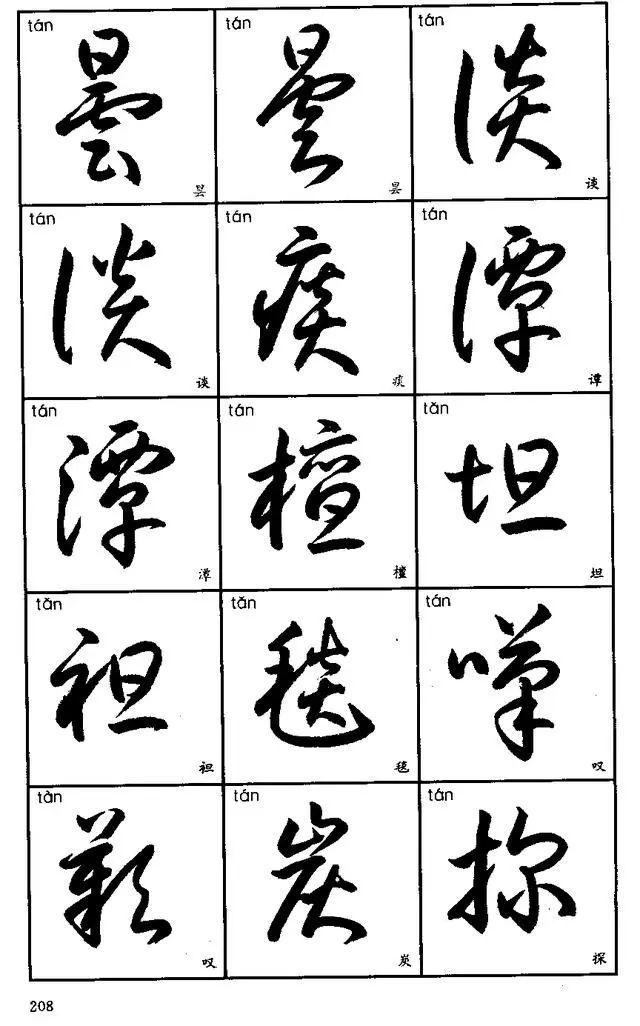 tán tán tán
曇 曇 談
昙 昙 谈
tán tán tán
談 痰 譚
谈 痰 谭
tán tán tǎn
潭 檀 坦
潭 檀 坦
tǎn tǎn tán
袒 毯 嘆
袒 毯 叹
tàn tán tán
歎 炭 探
叹 炭 探
208